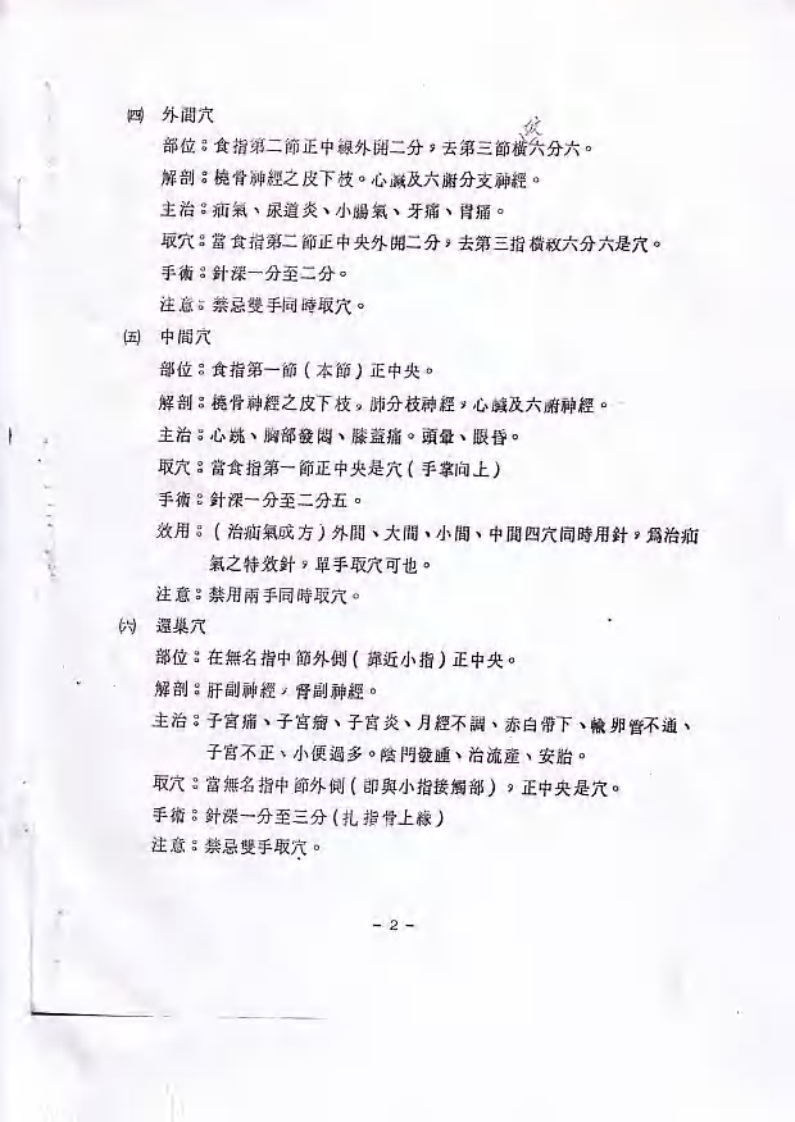 ㈣ 外間穴
部位：食指第二節正中線外開二分，去第三節橫紋六分六。
解剖：橈骨神經之皮下枝。心臟及六腑分支神經。
主治：疝氣、尿道炎、小腸氣、牙痛、胃痛。
取穴：當食指第二節正中央外開二分，去第三指橫紋六分六是穴。
手術：針深一分至二分。
注意：禁忌雙手同時取穴。
㈤ 中間穴
部位：食指第一節(本節)正中央。
解剖：橈骨神經之皮下枝，肺分枝神經，心臟及六腑神經。
主治：心跳、胸部發悶、膝蓋痛。頭暈、眼昏。
取穴：當食指第一節正中央是穴(手掌向上)
手術：針深一分至二分五。
效用：(治疝氣成方)外間、大間、小間、中間四穴同時用針，為治疝
氣之特效針，單手取穴可也。
注意：禁用兩手同時取穴。
㈥ 還巢穴
部位：在無名指中節外側(靠近小指)正中央。
解剖：肝副神經，腎副神經。
主治：子宮痛、子宮瘤、子宮炎、月經不調、赤白帶下、輸卵管不通、
子宮不正、小便過多。陰門發腫、治流產、安胎。
取穴：當無名指中節外側(即與小指接觸部)，正中央是穴。
手術：針深一分至三分(扎指骨上緣)
注意：禁忌雙手取穴。
- 2 -